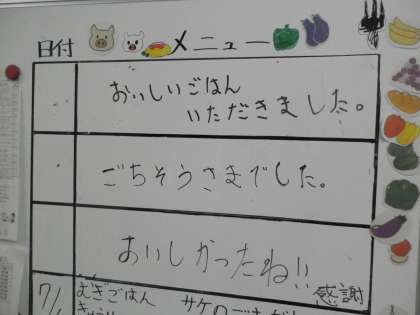 日付 メニュー
おいしいごはん
いただきました。
ごちそうさまでした。
おいしかったね!!
感謝
7/1 むぎごはん サケの